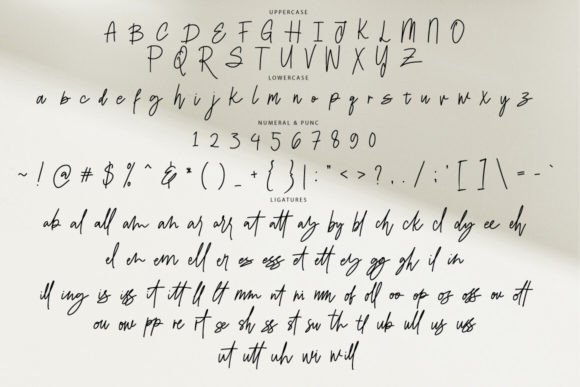 UPPERCASE
A B C D E F G H I J K L M N O
P Q R S T U V W X Y Z
LOWERCASE
a b c d e f g h i j k l m n o p q r s t u v w x y z
NUMERAL & PUNC
1 2 3 4 5 6 7 8 9 0
~ ! @ # $ % ^ & * ( ) _ + { } | : " < > ? , . / ; ' [ ] \ = - `
LIGATURES
ab al all am an ar arr at att ay by bl ch ck cl dy ee eh
el en em ell er es ess et ett ey gg gh il in
ill ing is iss it itt ll lt mm nt ni nm of oll oo op os oss ov ott
ou ow pp re rt se sh ss st su th tl ub ull us uss
ut utt uh wi will